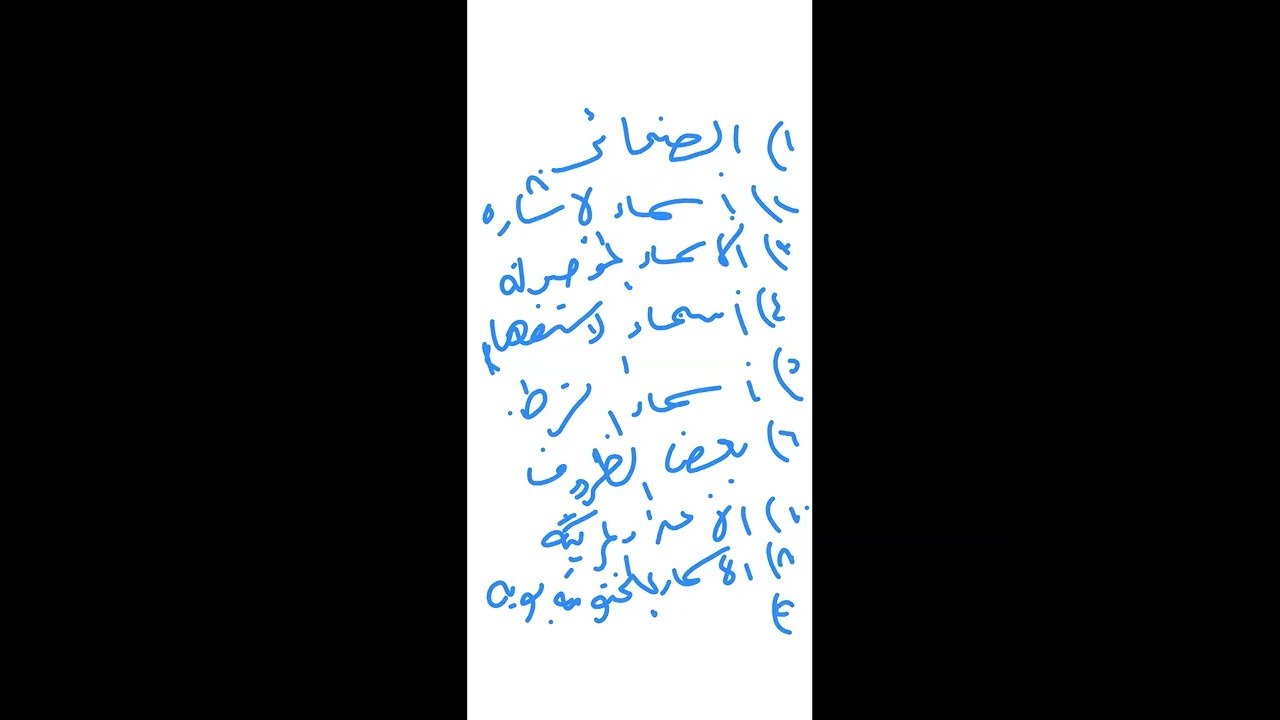 ١) الضمائر
٢) أسماء الاشاره
٣) الاسماء الموصوله
٤) أسماء الاستفهام
٥) أسماء الشرط
٦) بعض الظروف
٧) الاعداد المركبه
٨) الاسماء المختومه بويه
٤)